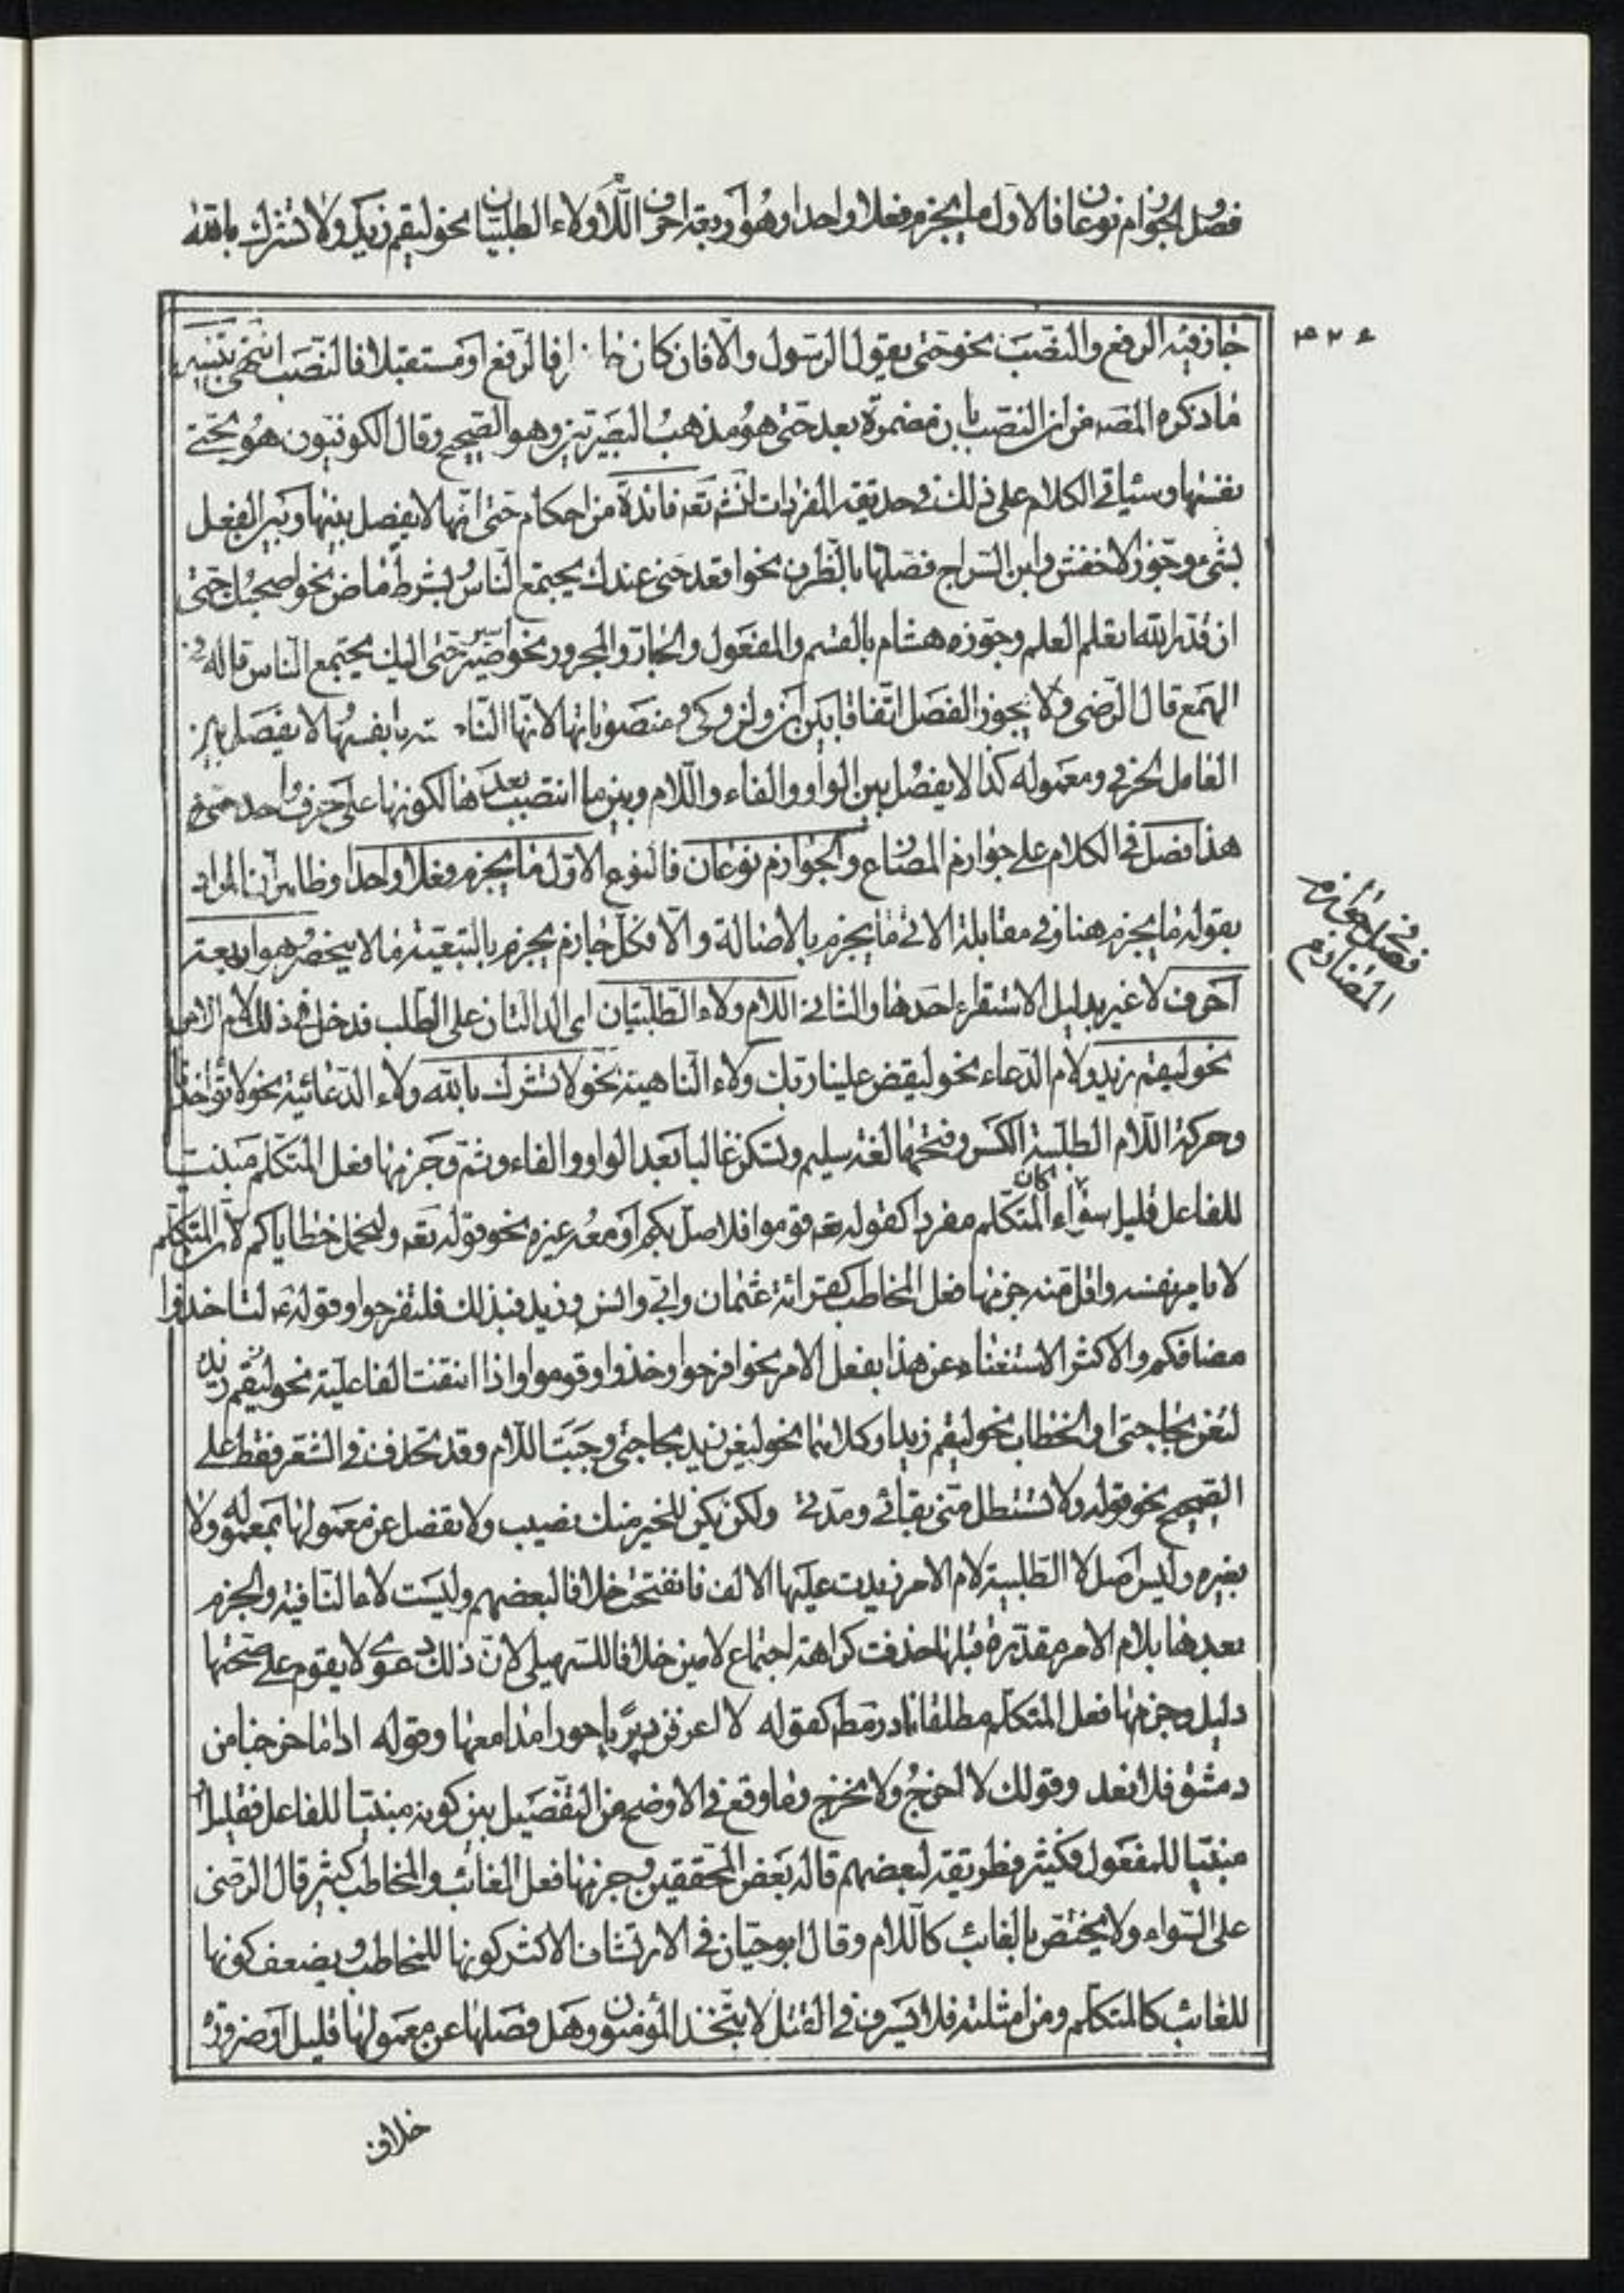 فصل الجوازم نوعان فالاول ما يجزم فعلا واحدا وهو اربعة احرف اللام ولاء الطلبيتان نحو ليقم زيد ولا تشرك بالله
جاز فيه الرفع والنصب نحو حتى يقول الرسول والا فان كان حا فالرفع او مستقبلا فالنصب انتهى تنبيه
ما ذكره المصه من ان النصب بان مضمرة بعد حتى هو مذهب البصريين وهو الصحيح وقال الكوفيون هو بحتى
بنفسها وسياتي الكلام على ذلك في حديقة المفردات انشاء تعه فائدة من احكام حتى انها لا يفصل بينها وبين الفعل
بشيء وجوز الاخفش وابن السراج فصلها بالظرف نحو اقعد حتى عندك يجتمع الناس بشرط ماض نحو اصحبك حتى
ان قدر الله اتعلم العلم وجوزه هشام بالقسم والمفعول والجار والمجرور نحو اصبر حتى اليك يجتمع الناس قاله في
الهمع قال الرضى ولا يجوز الفصل اتفاقا بين ان ولن وكى ومنصوباتها لانها النا بانفسها لا يفصل بين
العامل الحرفي ومعموله كذا لا يفصل بين الواو والفاء واللام وبين ما انتصب بعدها لكونها على حرف واحد
هذا فصل في الكلام على جوازم المضارع والجوازم نوعان فالنوع الاول ما يجزم فعلا واحدا وظاهر ان المراد
بقوله ما يجزم هنا وفي مقابلة الاتي ما يجزم بالاصالة والا فكل جازم يجزم بالتبعية ما لا ينحصر وهو اربعة
احرف لا غير بدليل الاستقراء احدها والثاني اللام ولاء الطلبيتان اى الدالتان على الطلب فدخل في ذلك لام الامر
نحو ليقم زيد ولام الدعاء نحو ليقض علينا ربك ولاء الناهية نحو لا تشرك بالله ولاء الدعائية نحو لا تؤاخذنا
وحركة اللام الطلبية الكسر وفتحها لغة سليم وتسكن غالبا بعد الواو والفاء وثم وجزمها فعل المتكلم مبنيا
للفاعل قليل سواء كان المتكلم مفردا كقوله تعه قوموا فلاصل بكم او معه غيره نحو قوله تعه ولنحمل خطاياكم لان المتكلم
لا يامر نفسه واقل منه جزمها فعل المخاطب كقرائة عثمان وابي وانس وزيد فبذلك فلتفرحوا وقوله ع لتاخذوا
مصافكم والاكثر الاستغناء عن هذا بفعل الامر نحو افرحوا وخذوا وقوموا واذا انتفت الفاعلية نحو ليقم زيد
لتعن بحاجتى او الخطاب نحو ليقم زيد او كلاهما نحو ليعن زيد بحاجتى وجبت اللام وقد تحذف في الشعر فقط على
الصحيح نحو قوله ولا تستطل متى بقائي ومدتي ولكن يكن للخير منك نصيب ولا يفصل عن معمولها بمعموله ولا
بغيره وليس اصل لا الطلبية لام الامر زيدت عليها الالف فانفتحت خلافا لبعضهم وليست لا ما النافية والجزم
بعدها بلام الامر مقدرة قبلها حذفت كراهة اجتماع لامين خلافا للسهيلى لان ذلك دعوى لا يقوم على صحتها
دليل وجزمها فعل المتكلم مطلقا نادر كقوله لا اعرفن ربربا حورا مدامعها وقوله اذا ما خرجنا من
دمشق فلا نعد وقولك لا اخرج ولا نخرج وما وقع في الاوضح من التفصيل بين كونه مبنيا للفاعل فقليل او
مبنيا للمفعول فكثير فطريقة لبعضهم قاله بعض المحققين وجزمها فعل الغائب والمخاطب كثير قال الرضى
على السواء ولا يختص بالغائب كاللام وقال ابوحيان في الارتشاف الاكثر كونها للمخاطب ويضعف كونها
للغائب كالمتكلم ومن امثلته فلا يسرف في القتل لا يتخذ المؤمنون وهل فصلها عن معمولها قليل او ضرورة
خلاف
فصل في جوازم
المضارع